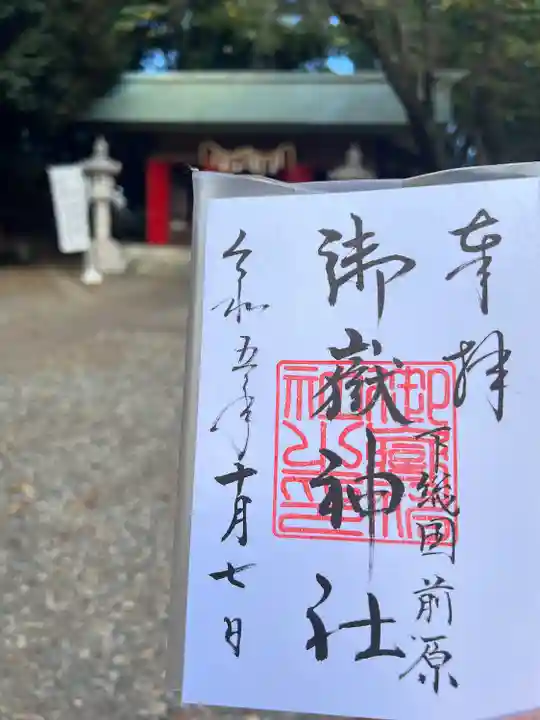 奉拝
下総国 前原
御嶽神社
令和五年十月七日